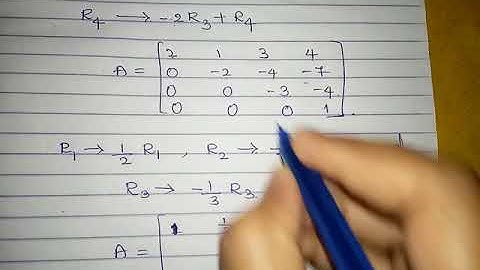 R₄ → -2R₃ + R₄
A = [2 1 3 4
0 -2 -4 -7
0 0 -3 -4
0 0 0 1].
R₁ → 1/2 R₁ , R₂ → -
R₃ → -1/3 R₃
A = [1 1